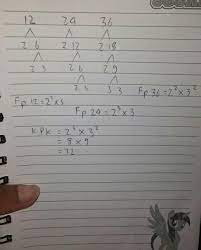 12 24 36
2 6 2 12 2 18
2 3 2 6 2 9
2 3 3 3
Fp 12 = 2² x 3
Fp 36 = 2² x 3²
Fp 24 = 2³ x 3
KPK = 2³ x 3²
= 8 x 9
= 72